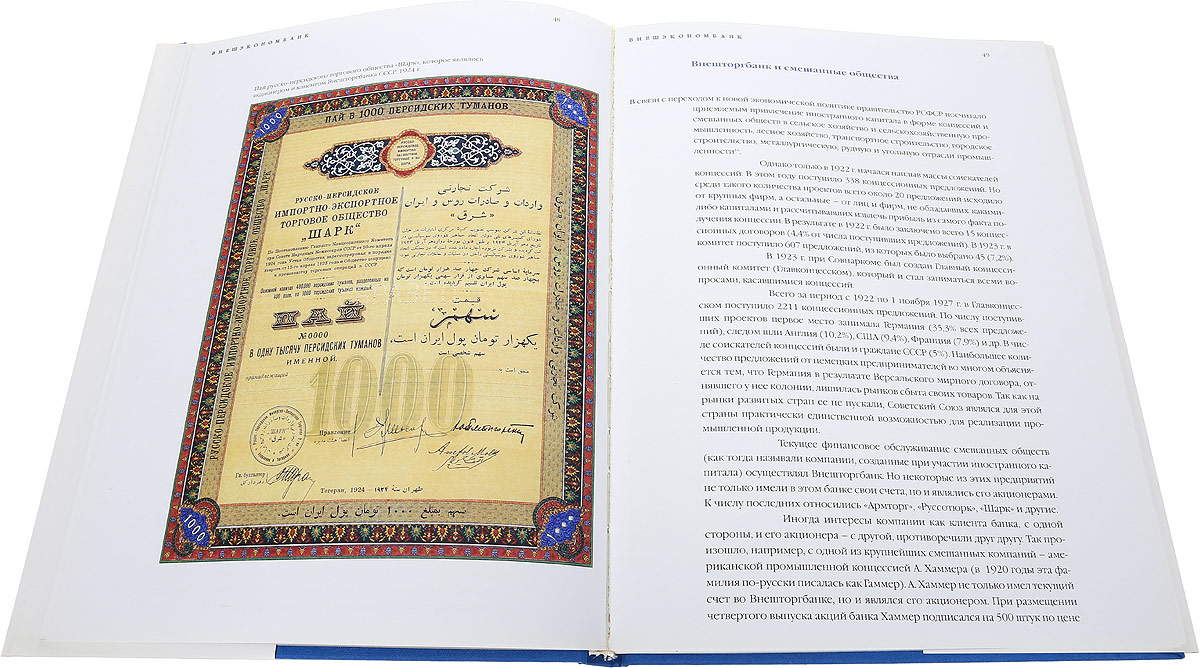 48
ВНЕШЭКОНОМБАНК
Пай русско-персидского торгового общества «Шарк», которое являлось
акционером и клиентом Внешторгбанка СССР. 1924 г.
ПАЙ В 1000 ПЕРСИДСКИХ ТУМАНОВ
1000
РУССКО-ПЕРСИДСКОЕ ИМПОРТНО-ЭКСПОРТНОЕ ТОРГОВОЕ ОБЩЕСТВО ШАРК
РУССКО-ПЕРСИДСКОЕ
ИМПОРТНО-ЭКСПОРТНОЕ
ТОРГОВОЕ ОБЩЕСТВО
„ШАРК“
По Постановлению Главного Концессионного Комитета
при Совете Народных Комиссаров СССР от
1924 года Устав Общества зарегистрирован в порядке
к производству торговых операций в СССР.
Основной капитал 400,000 персидских туманов, разделенных на
400 паев, по 1000 персидских туманов каждый.
ПАЙ
№ 0000
В ОДНУ ТЫСЯЧУ ПЕРСИДСКИХ ТУМАНОВ
ИМЕННОЙ.
принадлежащий
1000
Правление
„ШАРК“
Гл. бухгалтер
Тегеран, 1924
شرکت تجارتی
واردات و صادرات روس و ایران
« شرق »
قیمت
سهم
یکهزار تومان پول ایران است.
سهم شخصی است
طهران سنه ۱۹۲۴
سهم بمبلغ ۱۰۰۰ تومان پول ایران است.
1000
ВНЕШЭКОНОМБАНК
49
Внешторгбанк и смешанные общества
В связи с переходом к новой экономической политике правительство РСФСР посчитало
приемлемым привлечение иностранного капитала в форме концессий и
смешанных обществ в сельское хозяйство и сельскохозяйственную про-
мышленность, лесное хозяйство, транспортное строительство, городское
строительство, металлургическую, рудную и угольную отрасли промыш-
ленности
Однако только в 1922 г. начался наплыв массы соискателей
концессий. В этом году поступило 338 концессионных предложений. Но
среди такого количества проектов всего около 20 предложений исходило
от крупных фирм, а остальные – от лиц и фирм, не обладавших какими-
либо капиталами и рассчитывавших извлечь прибыль из самого факта по-
лучения концессии. В результате в 1922 г. было заключено всего 15 концес-
сионных договоров (4,4% от числа поступивших предложений). В 1923 г. в
комитет поступило 607 предложений, из которых было выбрано 45 (7,2%).
В 1923 г. при Совнаркоме был создан Главный концесси-
онный комитет (Главконцесском), который и стал заниматься всеми во-
просами, касавшимися концессий.
Всего за период с 1922 по 1 ноября 1927 г. в Главконцес-
ском поступило 2211 концессионных предложений. По числу поступив-
ших проектов первое место занимала Германия (35,3% всех предложе-
ний), следом шли Англия (10,2%), США (9,4%), Франция (7,9%) и др. В чис-
ле соискателей концессий были и граждане СССР (5%). Наибольшее коли-
чество предложений от немецких предпринимателей во многом объясня-
ется тем, что Германия в результате Версальского мирного договора, от-
нявшего у нее колонии, лишилась рынков сбыта своих товаров. Так как на
рынки развитых стран ее не пускали, Советский Союз являлся для этой
страны практически единственной возможностью для реализации про-
мышленной продукции.
Текущее финансовое обслуживание смешанных обществ
(как тогда называли компании, созданные при участии иностранного ка-
питала) осуществлял Внешторгбанк. Но некоторые из этих предприятий
не только имели в этом банке свои счета, но и являлись его акционерами.
К числу последних относились «Армторг», «Руссотюрк», «Шарк» и другие.
Иногда интересы компании как клиента банка, с одной
стороны, и его акционера – с другой, противоречили друг другу. Так про-
изошло, например, с одной из крупнейших смешанных компаний – аме-
риканской промышленной концессией А. Хаммера (в 1920 годы эта фа-
милия по-русски писалась как Гаммер). А. Хаммер не только имел текущий
счет во Внешторгбанке, но и являлся его акционером. При размещении
четвертого выпуска акций банка Хаммер подписался на 500 штук по цене